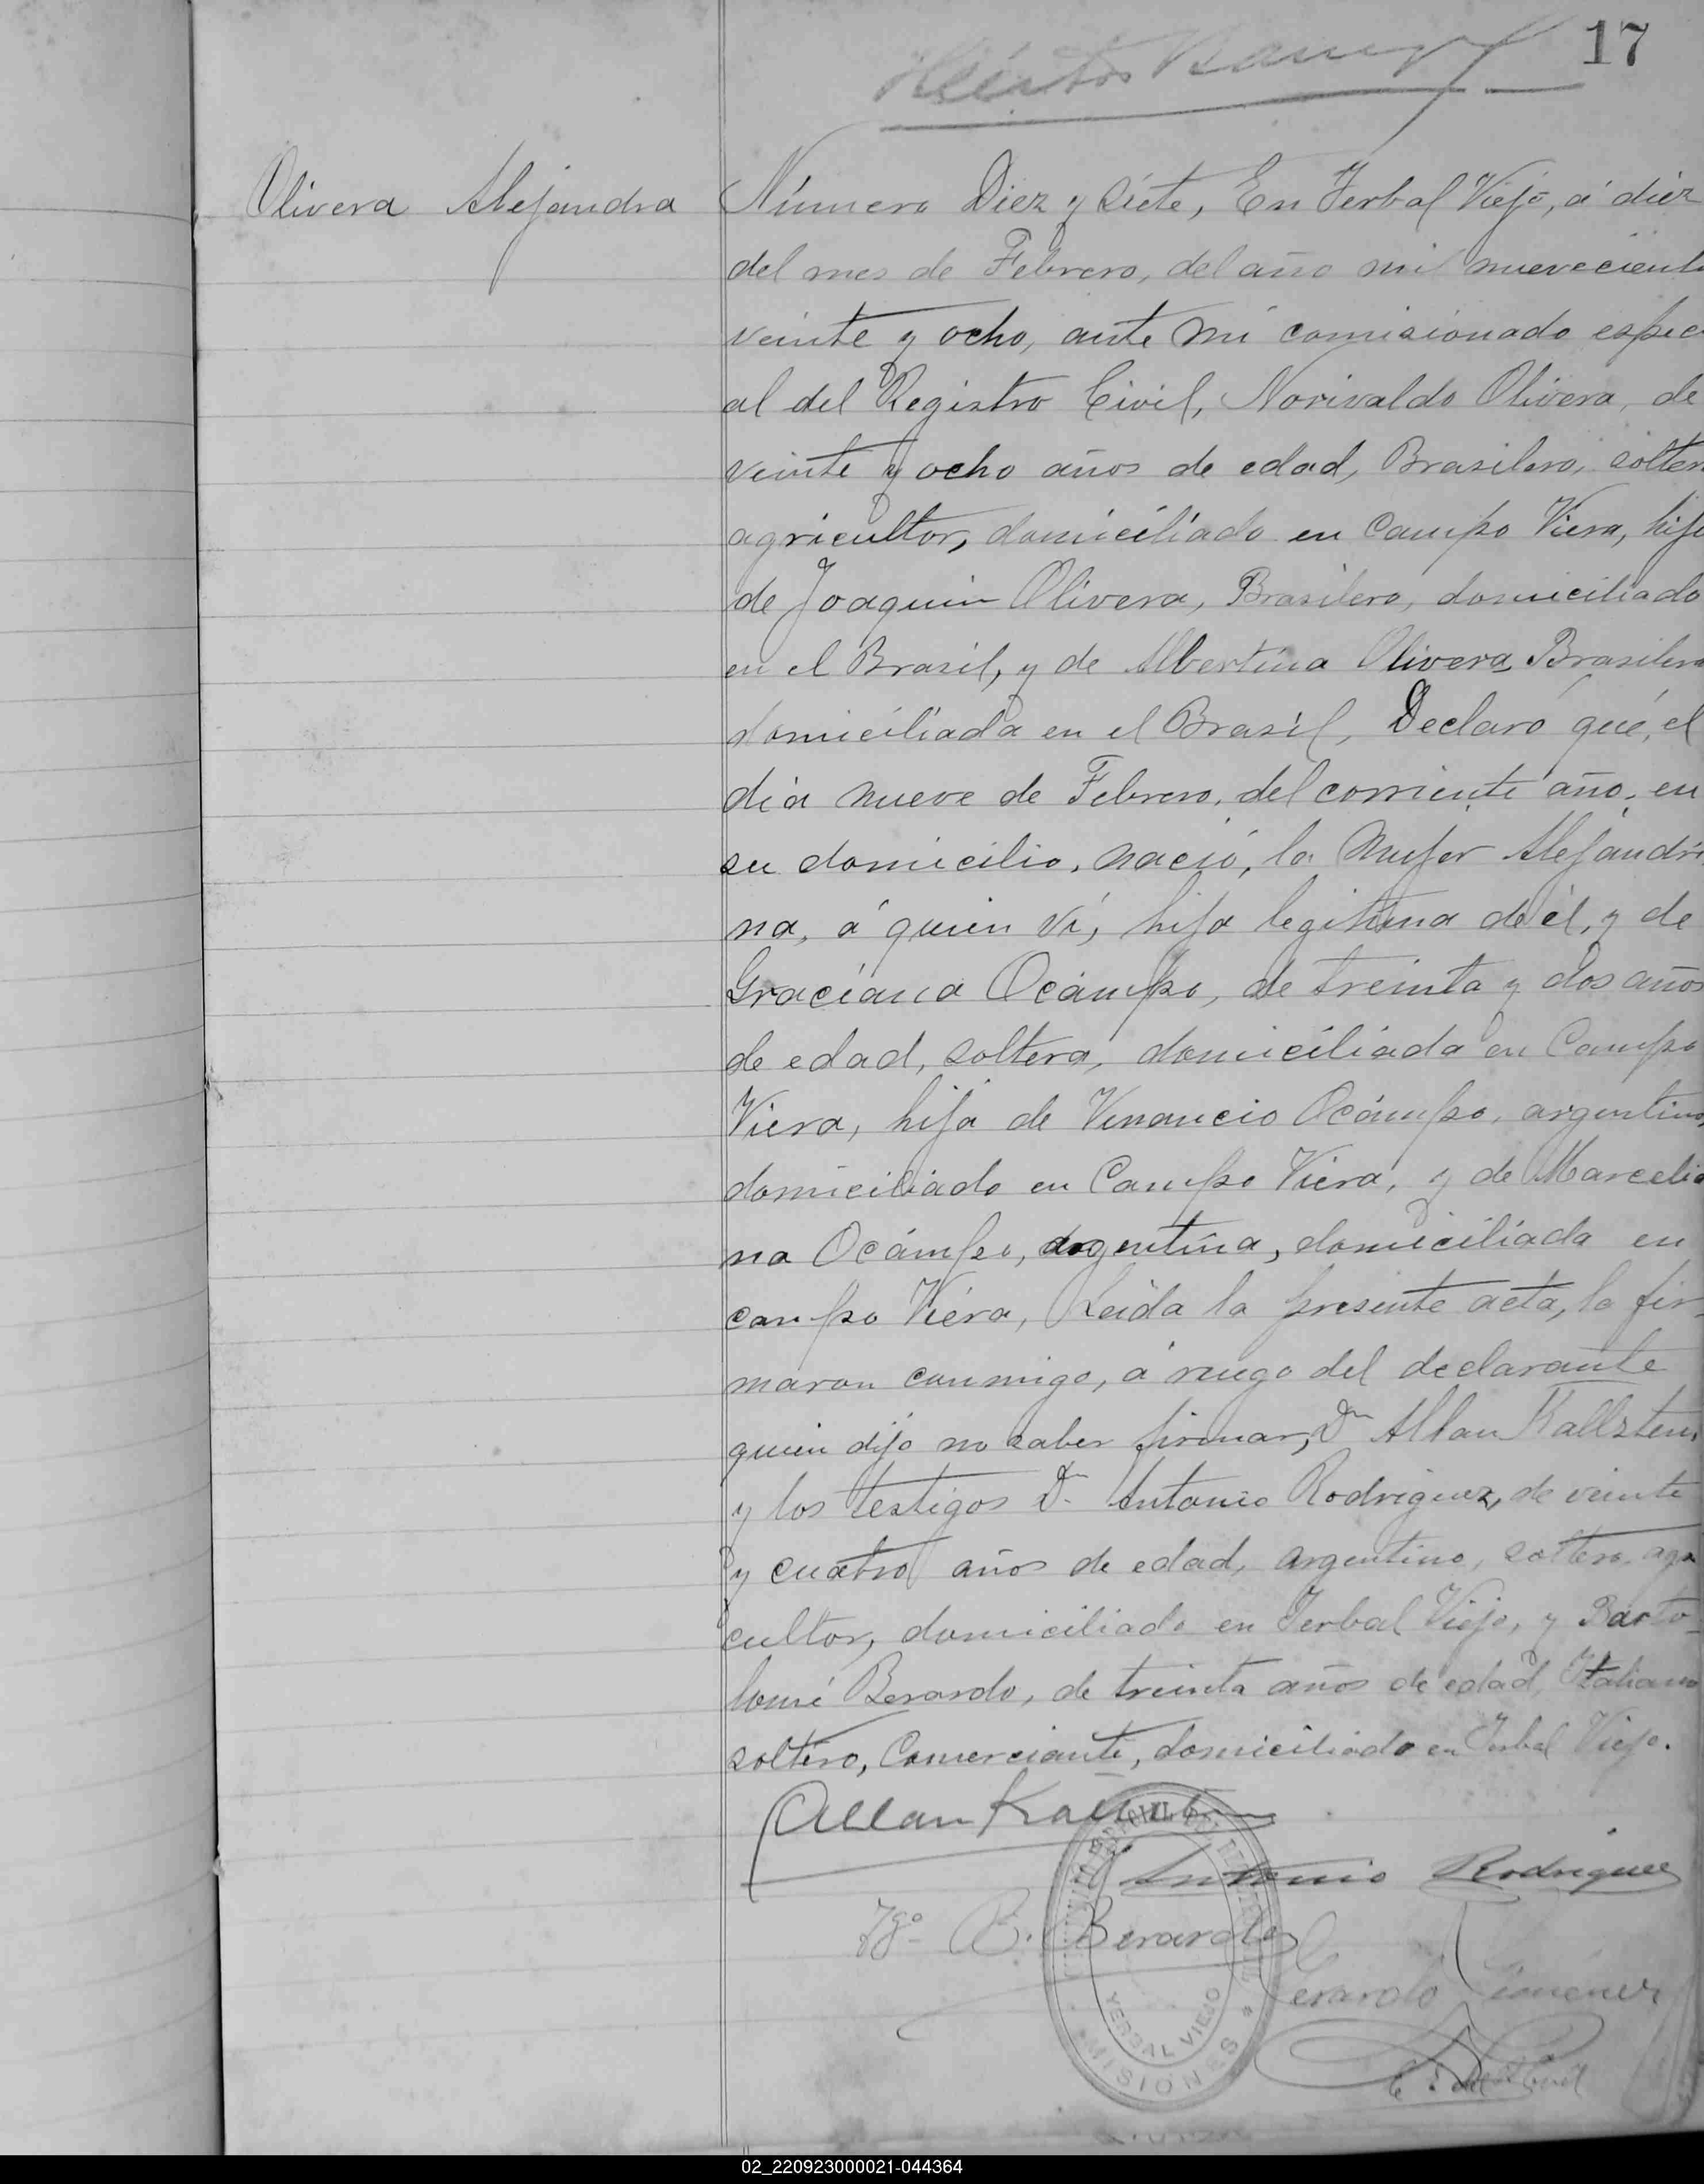 17
Olivera Alejandra
Número Diez y siete, En Yerbal Viejo, á diez
del mes de Febrero, del año mil nuevecient
veinte y ocho, ante mi comisionado espec
al del Registro Civil, Norivaldo Olivera, de
veinte y ocho años de edad, Brasilero, solter
agricultor, domiciliado en Campo Viera, hijo
de Joaquin Olivera, Brasilero, domiciliado
en el Brasil, y de Albertina Olivera Brasilera
domiciliada en el Brasil, Declaró que, el
dia nueve de Febrero, del corriente año, en
su domicilio, nació, la Mujer Alejandri
na, á quien ví, hija legitima de él, y de
Graciana Ocámpo, de treinta y dos años
de edad, soltera, domiciliada en Campo
Viera, hija de Venancio Ocámpo, argentino,
domiciliado en Campo Viera, y de Marceli
na Ocámpo, argentina, domiciliada en
campo Viera, Leida la presente acta, la fir-
maron conmigo, á ruego del declarante
quien dijo no saber firmar, Dn Allan Kallsten,
y los testigos Dn Antonio Rodriguez, de veinte
y cuatro años de edad, argentino, soltero, agri
cultor, domiciliado en Yerbal Viejo, y Barto-
lomé Berardo, de treinta años de edad, Italiano
soltero, Comerciante, domiciliado en Yerbal Viejo.
Allan
Antonio Rodriguez
Tgo B. Berardo
Gerardo Jiménez
YERBAL VIEJO
MISIONES
02_220923000021-044364